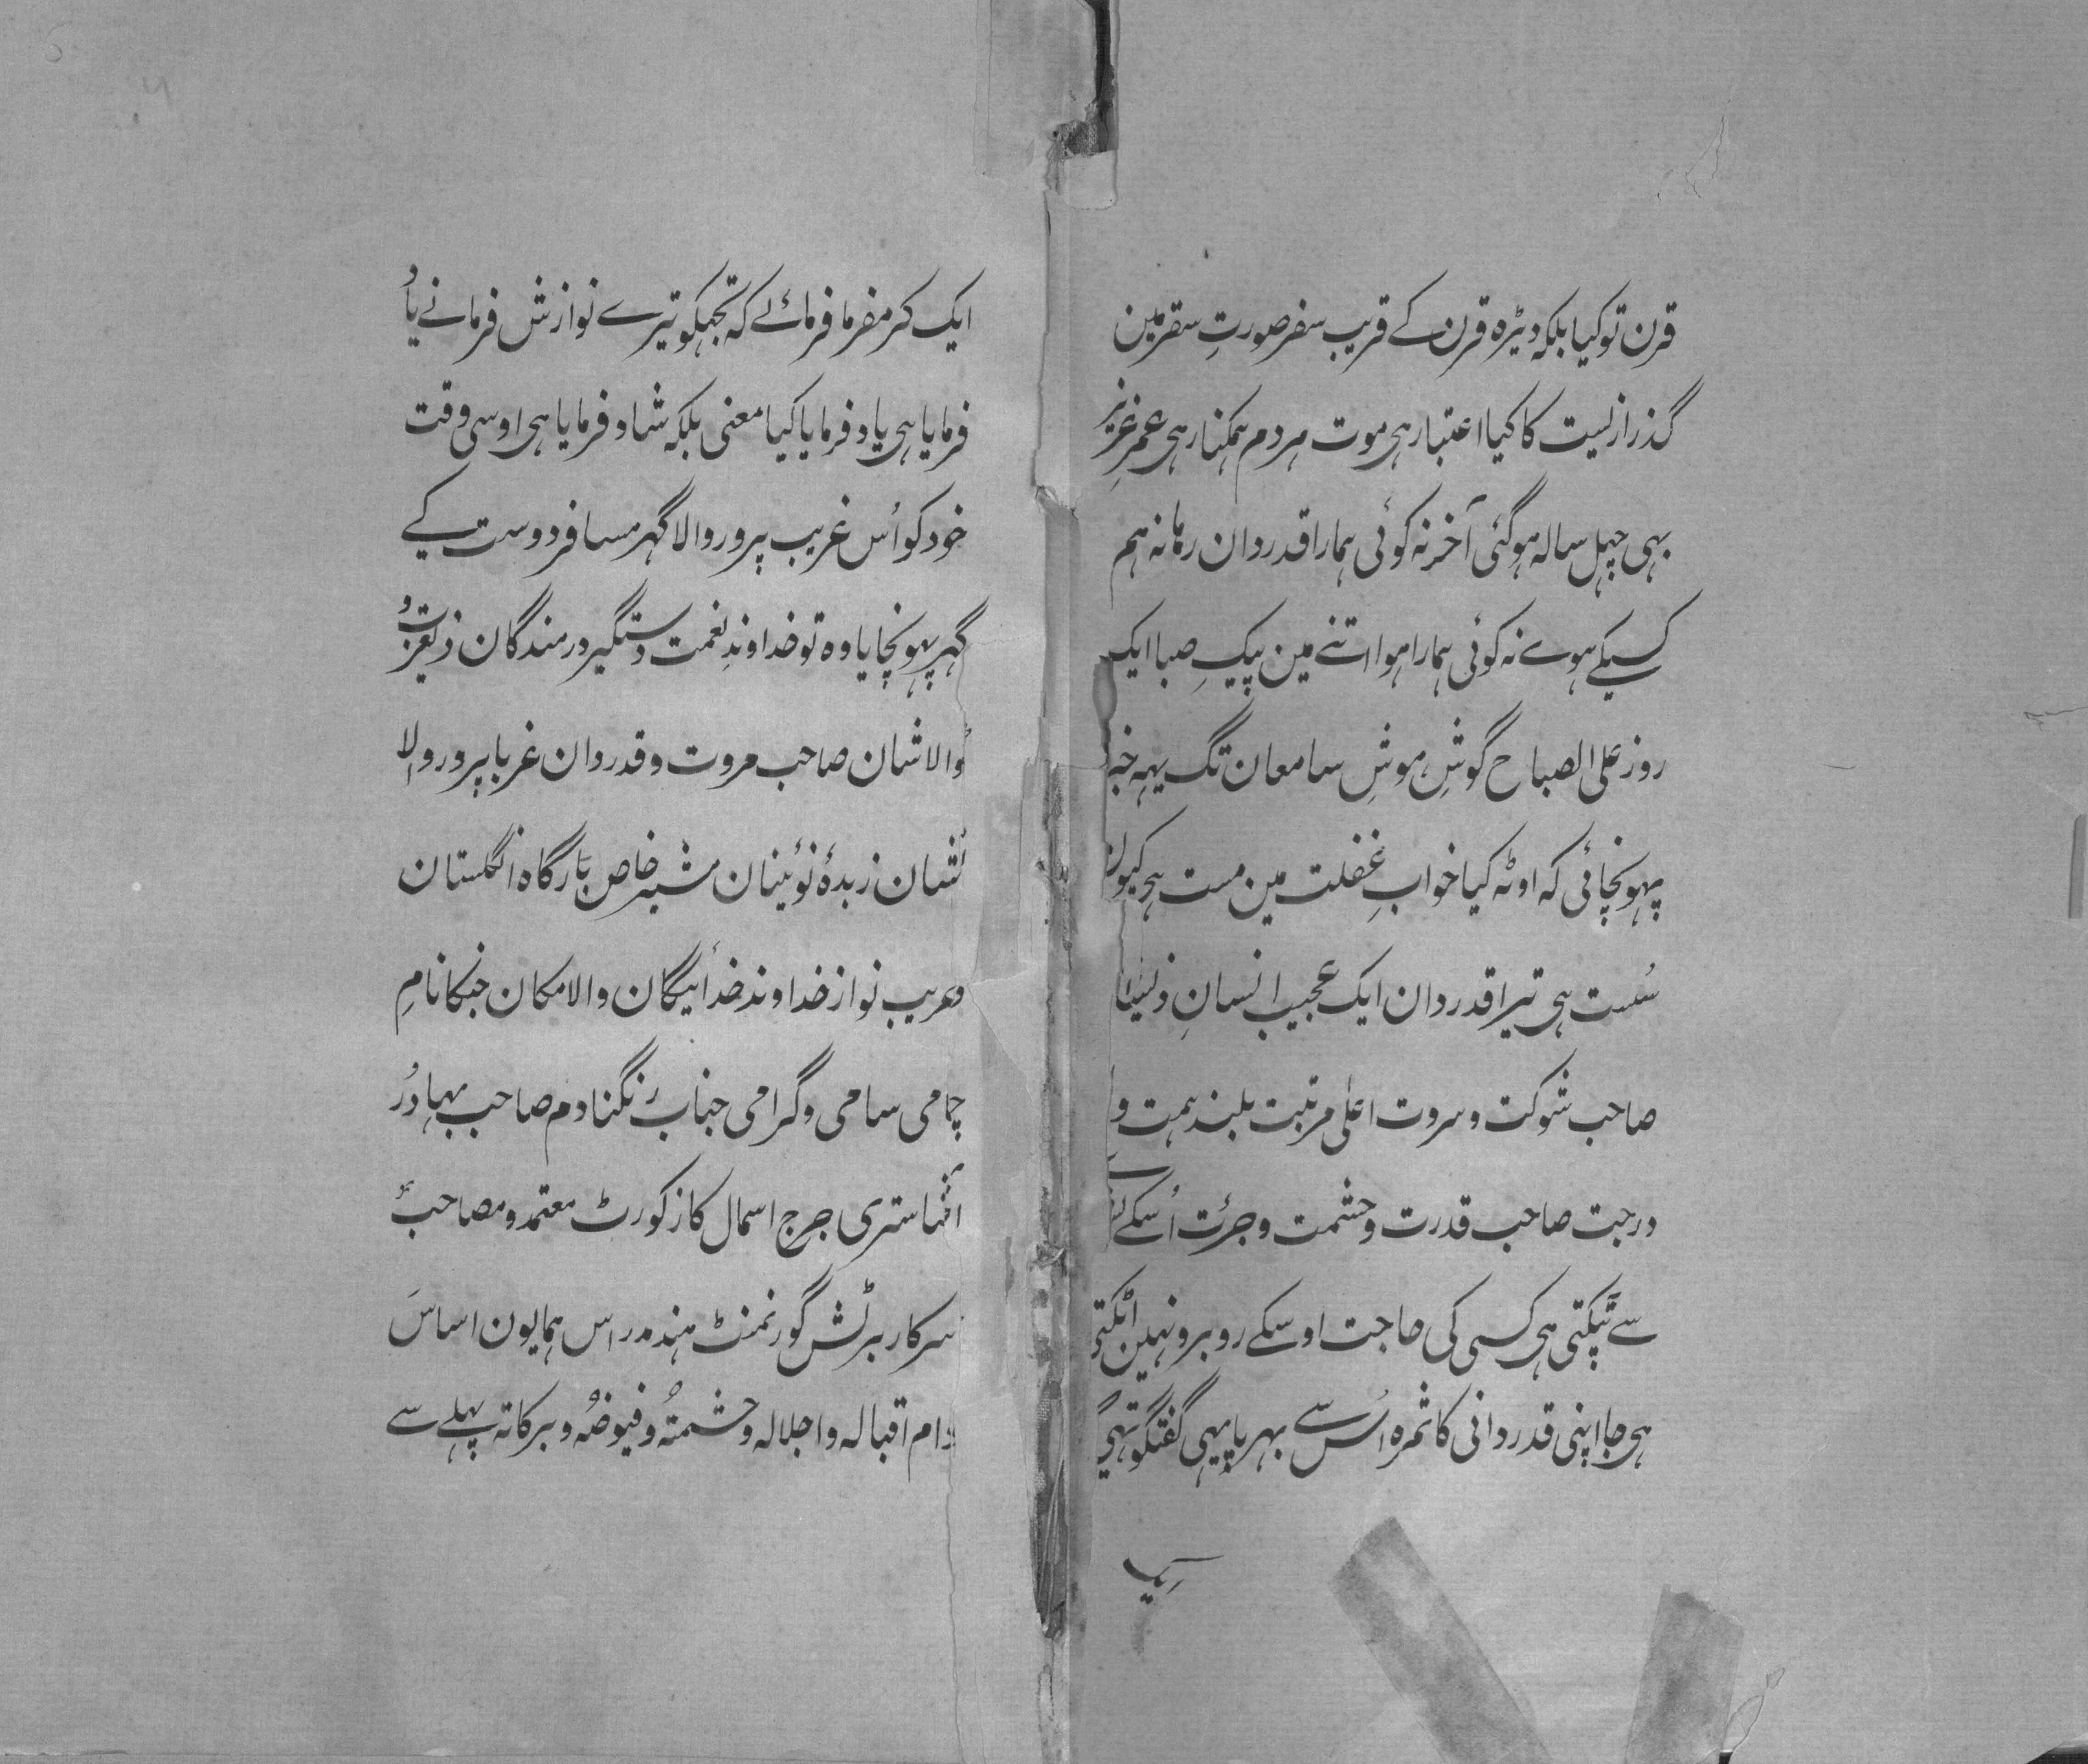 قرن تو کیا بلکہ دیڑہ قرن کے قریب سفر صورتِ سقر مین
گذرا زیست کا کیا اعتبار ہی موت ہر دم ہمکنار ہی عمر عزیز
بہی چہل سالہ ہو گئی آخر نہ کوئی ہمارا قدردان رہا نہ ہم
کسیکے ہوے نہ کوئی ہمارا ہوا اتنے مین پیکِ صبا ایک
روز علی الصباح گوشِ ہوشِ سامعان تگ یہہ خبر
پہونچائی کہ اوٹہ کیا خوابِ غفلت مین مست ہی کیون
سُست ہی تیرا قدردان ایک عجیب انسانِ ذیشان
صاحب شوکت و سروت اعلٰی مرتبت بلند ہمت والا
درجت صاحب قدرت و حشمت و جرئت اُسکے
سے ٹپکتی ہی کسی کی حاجت اوسکے روبرو نہین اٹکتی
ہی جا اپنی قدردانی کا ثمرہ اُس سے بہر پا یہی گفتگو تہی
ایک
ایک کرمفرما فرمائے کہ تجہکو تیرے نوازش فرمانے یاد
فرمایا ہی یاد فرمایا کیا معنی بلکہ شاد فرمایا ہی اوسی وقت
خود کو اُس غریب پرور والا گہر مسافر دوست کے
گہر پہونچایا وہ تو خداوندِ نعمت دستگیر درمندگان ذیعزت و
والاشان صاحب مروت و قدردان غربا پرور والا
نشان زبدۂ نوئینان مشیر خاص بارگاہ انگلستان
غریب نواز خداوند خدایگان والامکان جنکا نامِ
سامی و گرامی جناب رنگنادم صاحب بہادر
استری جرج اسمال کاز کورٹ معتمد و مصاحب
سرکار برٹش گورنمنٹ ہند مدراس ہمایون اساس
دام اقبالہ و اجلالہ و حشمتہُ و فیوضہُ و برکاتہ پہلے سے